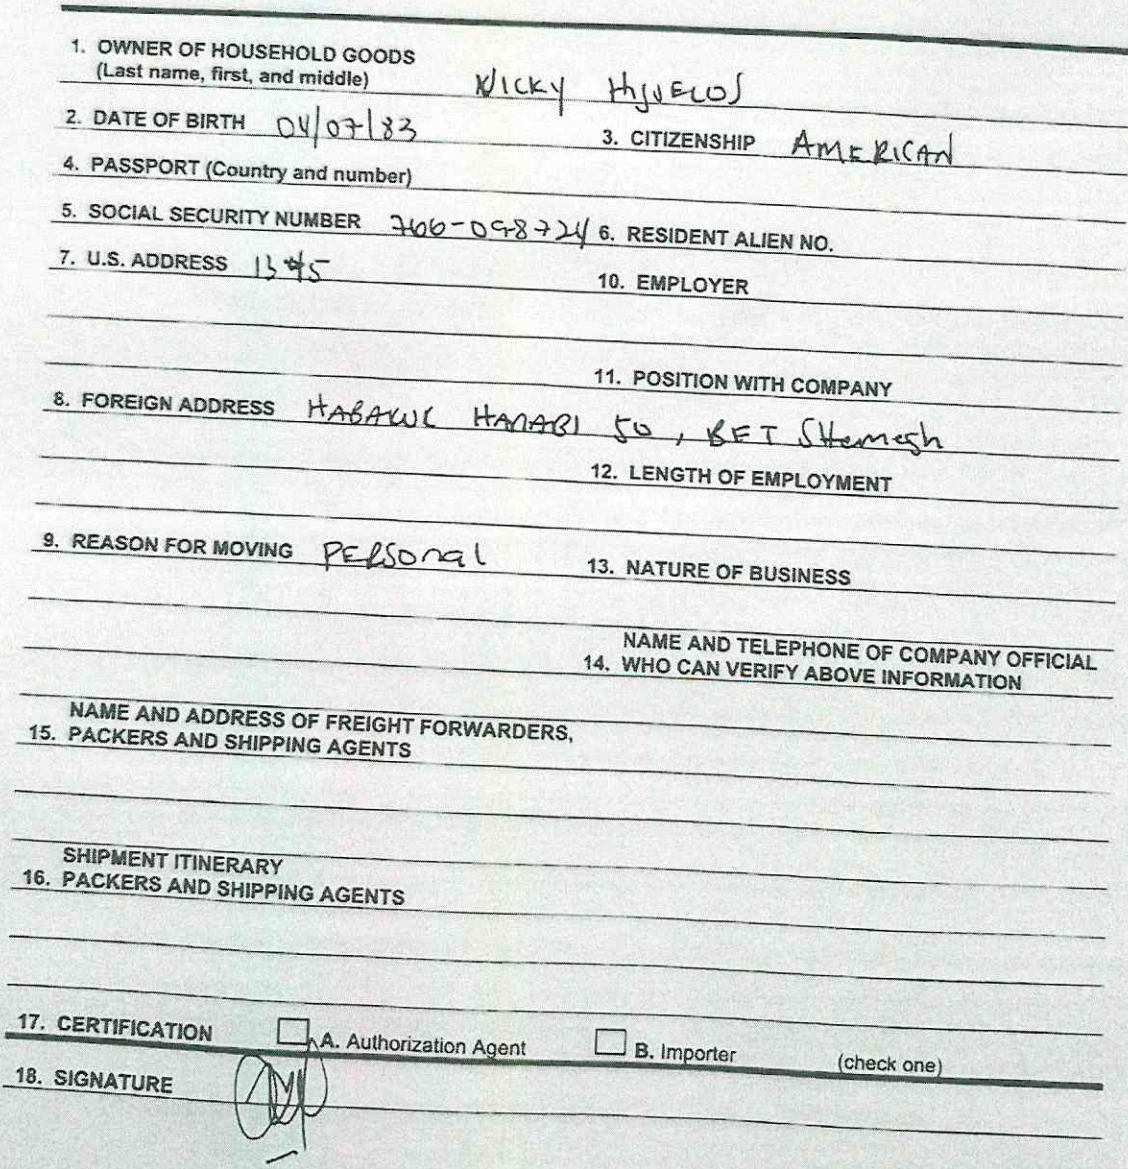 1. OWNER OF HOUSEHOLD GOODS
(Last name, first, and middle) NICKY HIJUELOS
2. DATE OF BIRTH 04/07/83 3. CITIZENSHIP AMERICAN
4. PASSPORT (Country and number)
5. SOCIAL SECURITY NUMBER 6. RESIDENT ALIEN NO.
7. U.S. ADDRESS 10. EMPLOYER
11. POSITION WITH COMPANY
8. FOREIGN ADDRESS HANABI 50, BET SHemesh
12. LENGTH OF EMPLOYMENT
9. REASON FOR MOVING PERSonal 13. NATURE OF BUSINESS
NAME AND TELEPHONE OF COMPANY OFFICIAL
14. WHO CAN VERIFY ABOVE INFORMATION
NAME AND ADDRESS OF FREIGHT FORWARDERS,
15. PACKERS AND SHIPPING AGENTS
SHIPMENT ITINERARY
16. PACKERS AND SHIPPING AGENTS
17. CERTIFICATION A. Authorization Agent B. Importer (check one)
18. SIGNATURE